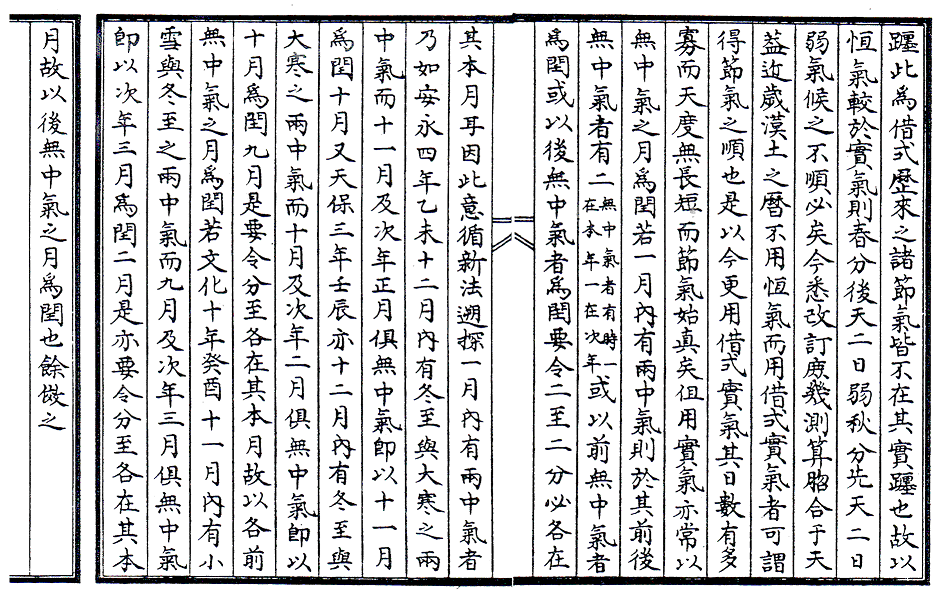 躔此爲借式歷來之諸節氣皆不在其實躔也故以
恒氣較於實氣則春分後天二日弱秋分先天二日
弱氣候之不順必矣今悉改訂庶幾測算脗合于天
葢近歲漢土之曆不用恒氣而用借式實氣者可謂
得節氣之順也是以今更用借式實氣其日數有多
寡而天度無長短而節氣始真矣但用實氣亦常以
無中氣之月爲閏若一月內有兩中氣則於其前後
無中氣者有二無中氣者有時一在本年一在次年或以前無中氣者
爲閏或以後無中氣者爲閏要令二至二分必各在
其本月耳因此意循新法遡探一月內有兩中氣者
乃如安永四年乙未十二月內有冬至與大寒之兩
中氣而十一月及次年正月俱無中氣卽以十一月
爲閏十月又天保三年壬辰亦十二月內有冬至與
大寒之兩中氣而十月及次年二月俱無中氣卽以
十月爲閏九月是要令分至各在其本月故以各前
無中氣之月爲閏若文化十年癸酉十一月內有小
雪與冬至之兩中氣而九月及次年三月俱無中氣
卽以次年三月爲閏二月是亦要令分至各在其本
月故以後無中氣之月爲閏也餘倣之